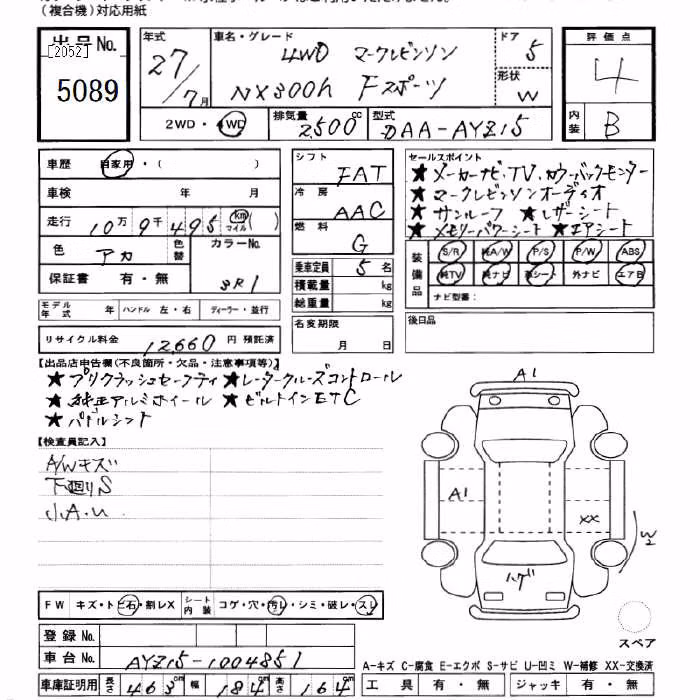 （複合機）対応用紙
出品No.
[2052]
5089
年式
27/7月
車名・グレード
4WD マークレビンソン
NX300h Fスポーツ
ドア 5
形状 W
評価点
4
内装 B
2WD・4WD
排気量 2,500cc
型式 DAA-AYZ15
車歴 自家用・（ ）
車検 年 月
走行 10万9千495 km マイル（ ）
色 アカ
色替
カラーNo.
3R1
保証書 有・無
シフト FAT
冷房 AAC
燃料 G
乗車定員 5名
積載量 kg
総重量 kg
セールスポイント
★メーカーナビ、TV、カラーバックモニター
★マークレビンソンオーディオ
★サンルーフ ★レザーシート
★メモリーパワーシート ★エアシート
装備品
S/R 純A/W P/S P/W ABS
純TV 純ナビ 革シート 外ナビ エアB
ナビ型番：
モデル年式 年 ハンドル 左・右 ディーラー・並行
リサイクル料金 12,660 円 預託済
名変期限
月 日
後日品
【出品店申告欄(不良箇所・欠品・注意事項等)】
★プリクラッシュセーフティ ★レーダークルーズコントロール
★純正アルミホイール ★ビルトインETC
★パドルシフト
【検査員記入】
A/Wキズ
下廻りS
小A・U
A1
A1
XX
W2
ハゲ
スペア
FW キズ・トビ石・割レX
シート内装 コゲ・穴・汚レ・シミ・破レ・スレ
登録No.
車台No. AYZ15-1004851
車庫証明用 長さ 463cm 幅 184cm 高さ 164cm
A-キズ C-腐食 E-エクボ S-サビ U-凹ミ W-補修 XX-交換済
工具 有・無 ジャッキ 有・無